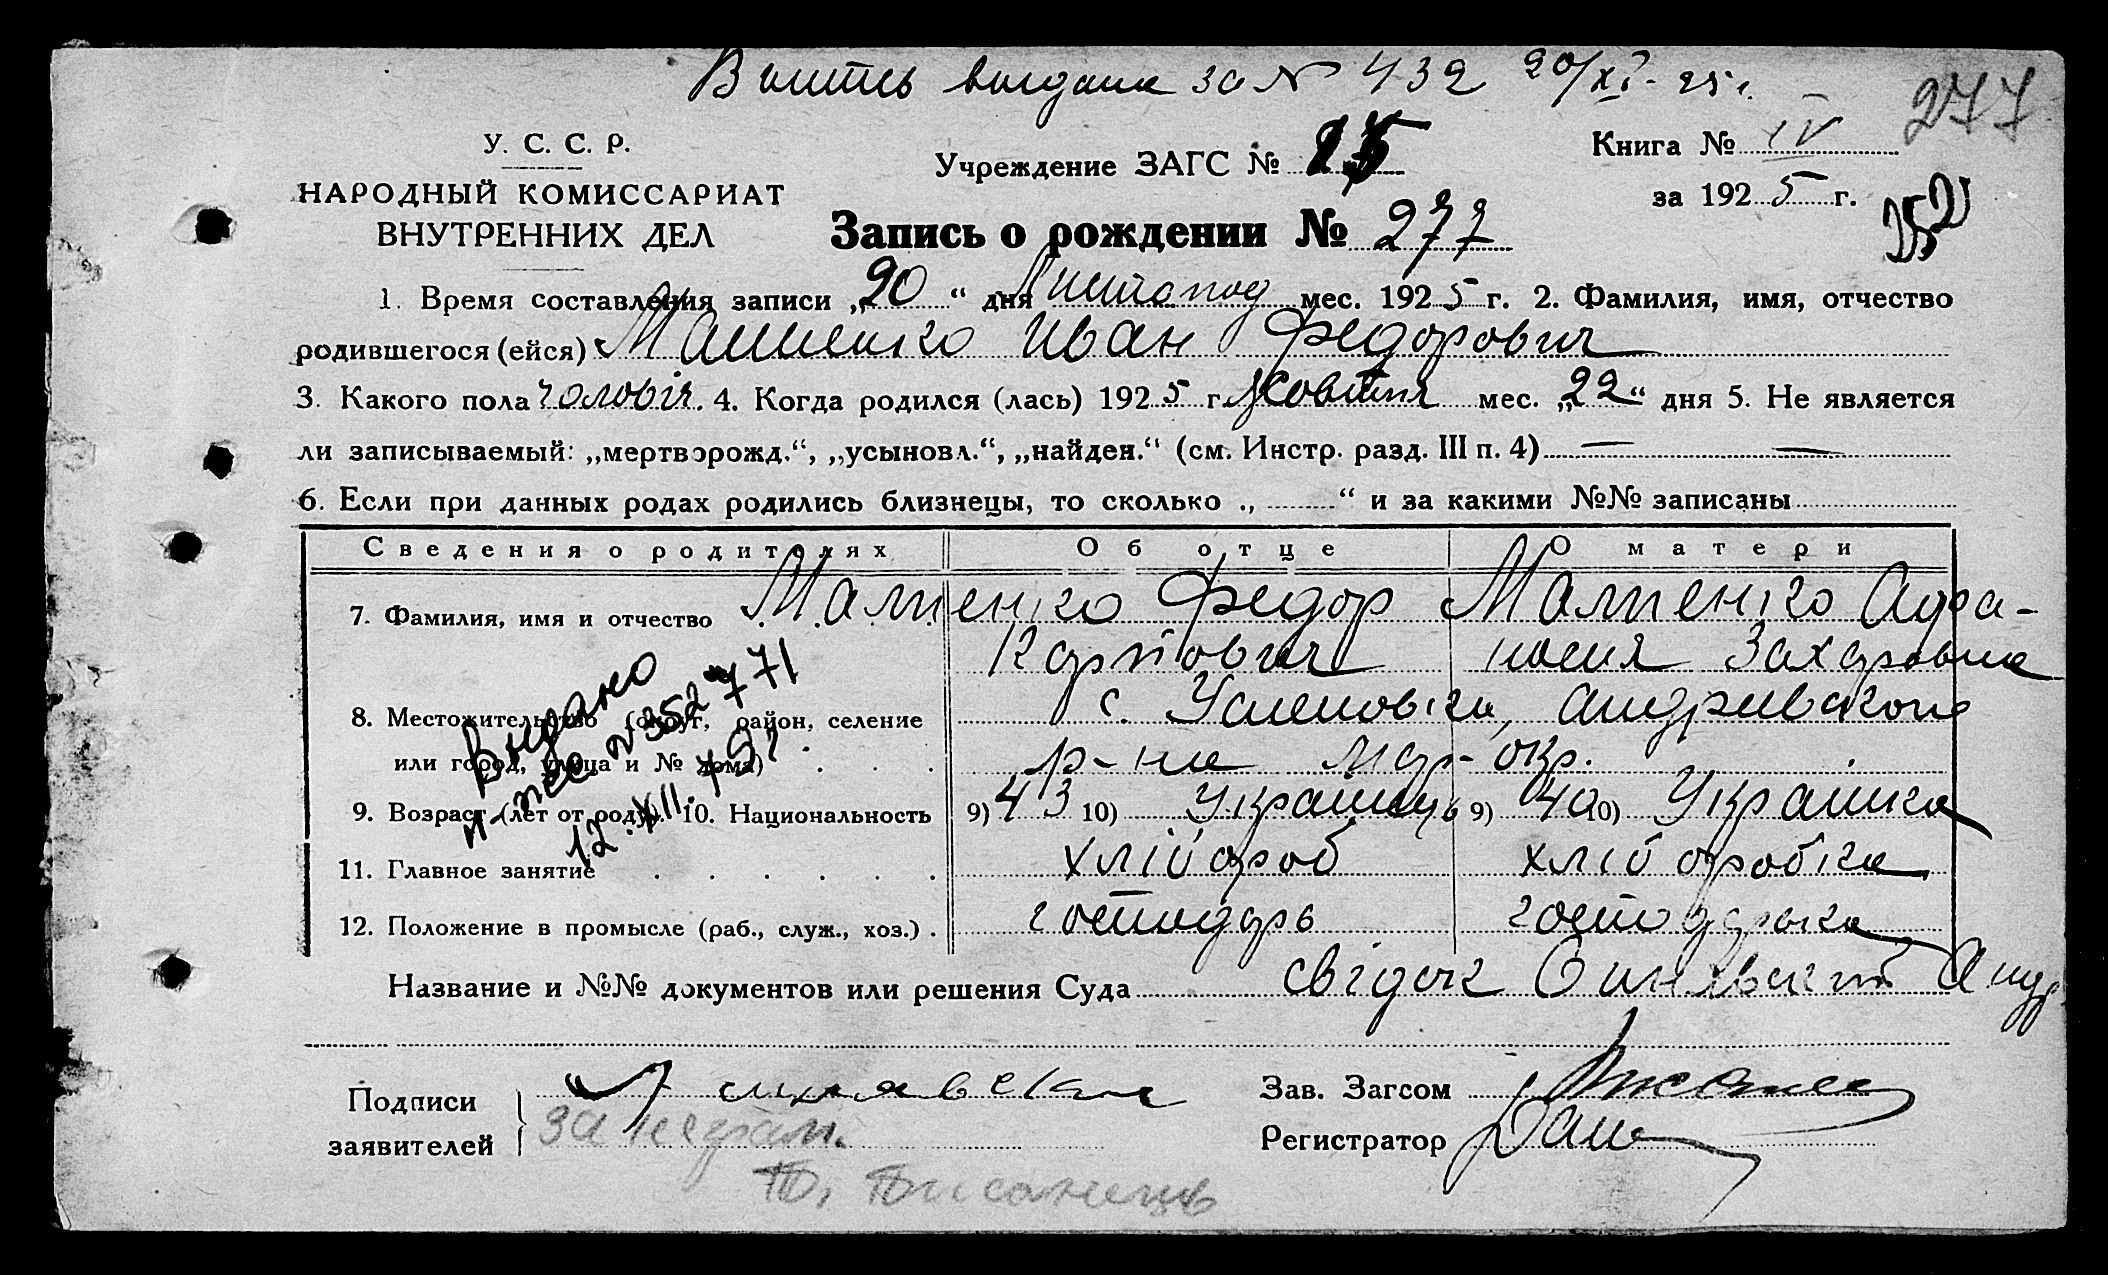 Выпись выдана за № 432 20/XI - 25 г.
277
У. С. С. Р.
НАРОДНЫЙ КОМИССАРИАТ
ВНУТРЕННИХ ДЕЛ
Учреждение ЗАГС №
Книга № IV
за 1925 г.
Запись о рождении № 277
1. Время составления записи „20“ дня Листопад мес. 1925 г. 2. Фамилия, имя, отчество
родившегося (ейся) Иван Федорович
3. Какого пола чоловіч. 4. Когда родился (лась) 1925 г. Жовтня мес. „22“ дня 5. Не является
ли записываемый: „мертворожд.“, „усыновл.“, „найден.“ (см. Инстр. разд. III п. 4) — —
6. Если при данных родах родились близнецы, то сколько „ “ и за какими №№ записаны
Сведения о родителях Об отце О матери
7. Фамилия, имя и отчество Федор Афа-
Карпович Захаровна
8. Местожительство (округ, район, селение с. Успеновка,
или город, улица и № дома) р-на окр.
Видано
№ 352771
12.XII.79 г.
9. Возраст (лет от роду). 10. Национальность 9) 43 10) Українець 9) 40 10) Українка
11. Главное занятие хлібороб хліборобка
12. Положение в промысле (раб., служ., хоз.) господарь господарька
Название и №№ документов или решения Суда свідок
Подписи
заявителей
Зав. Загсом
Регистратор